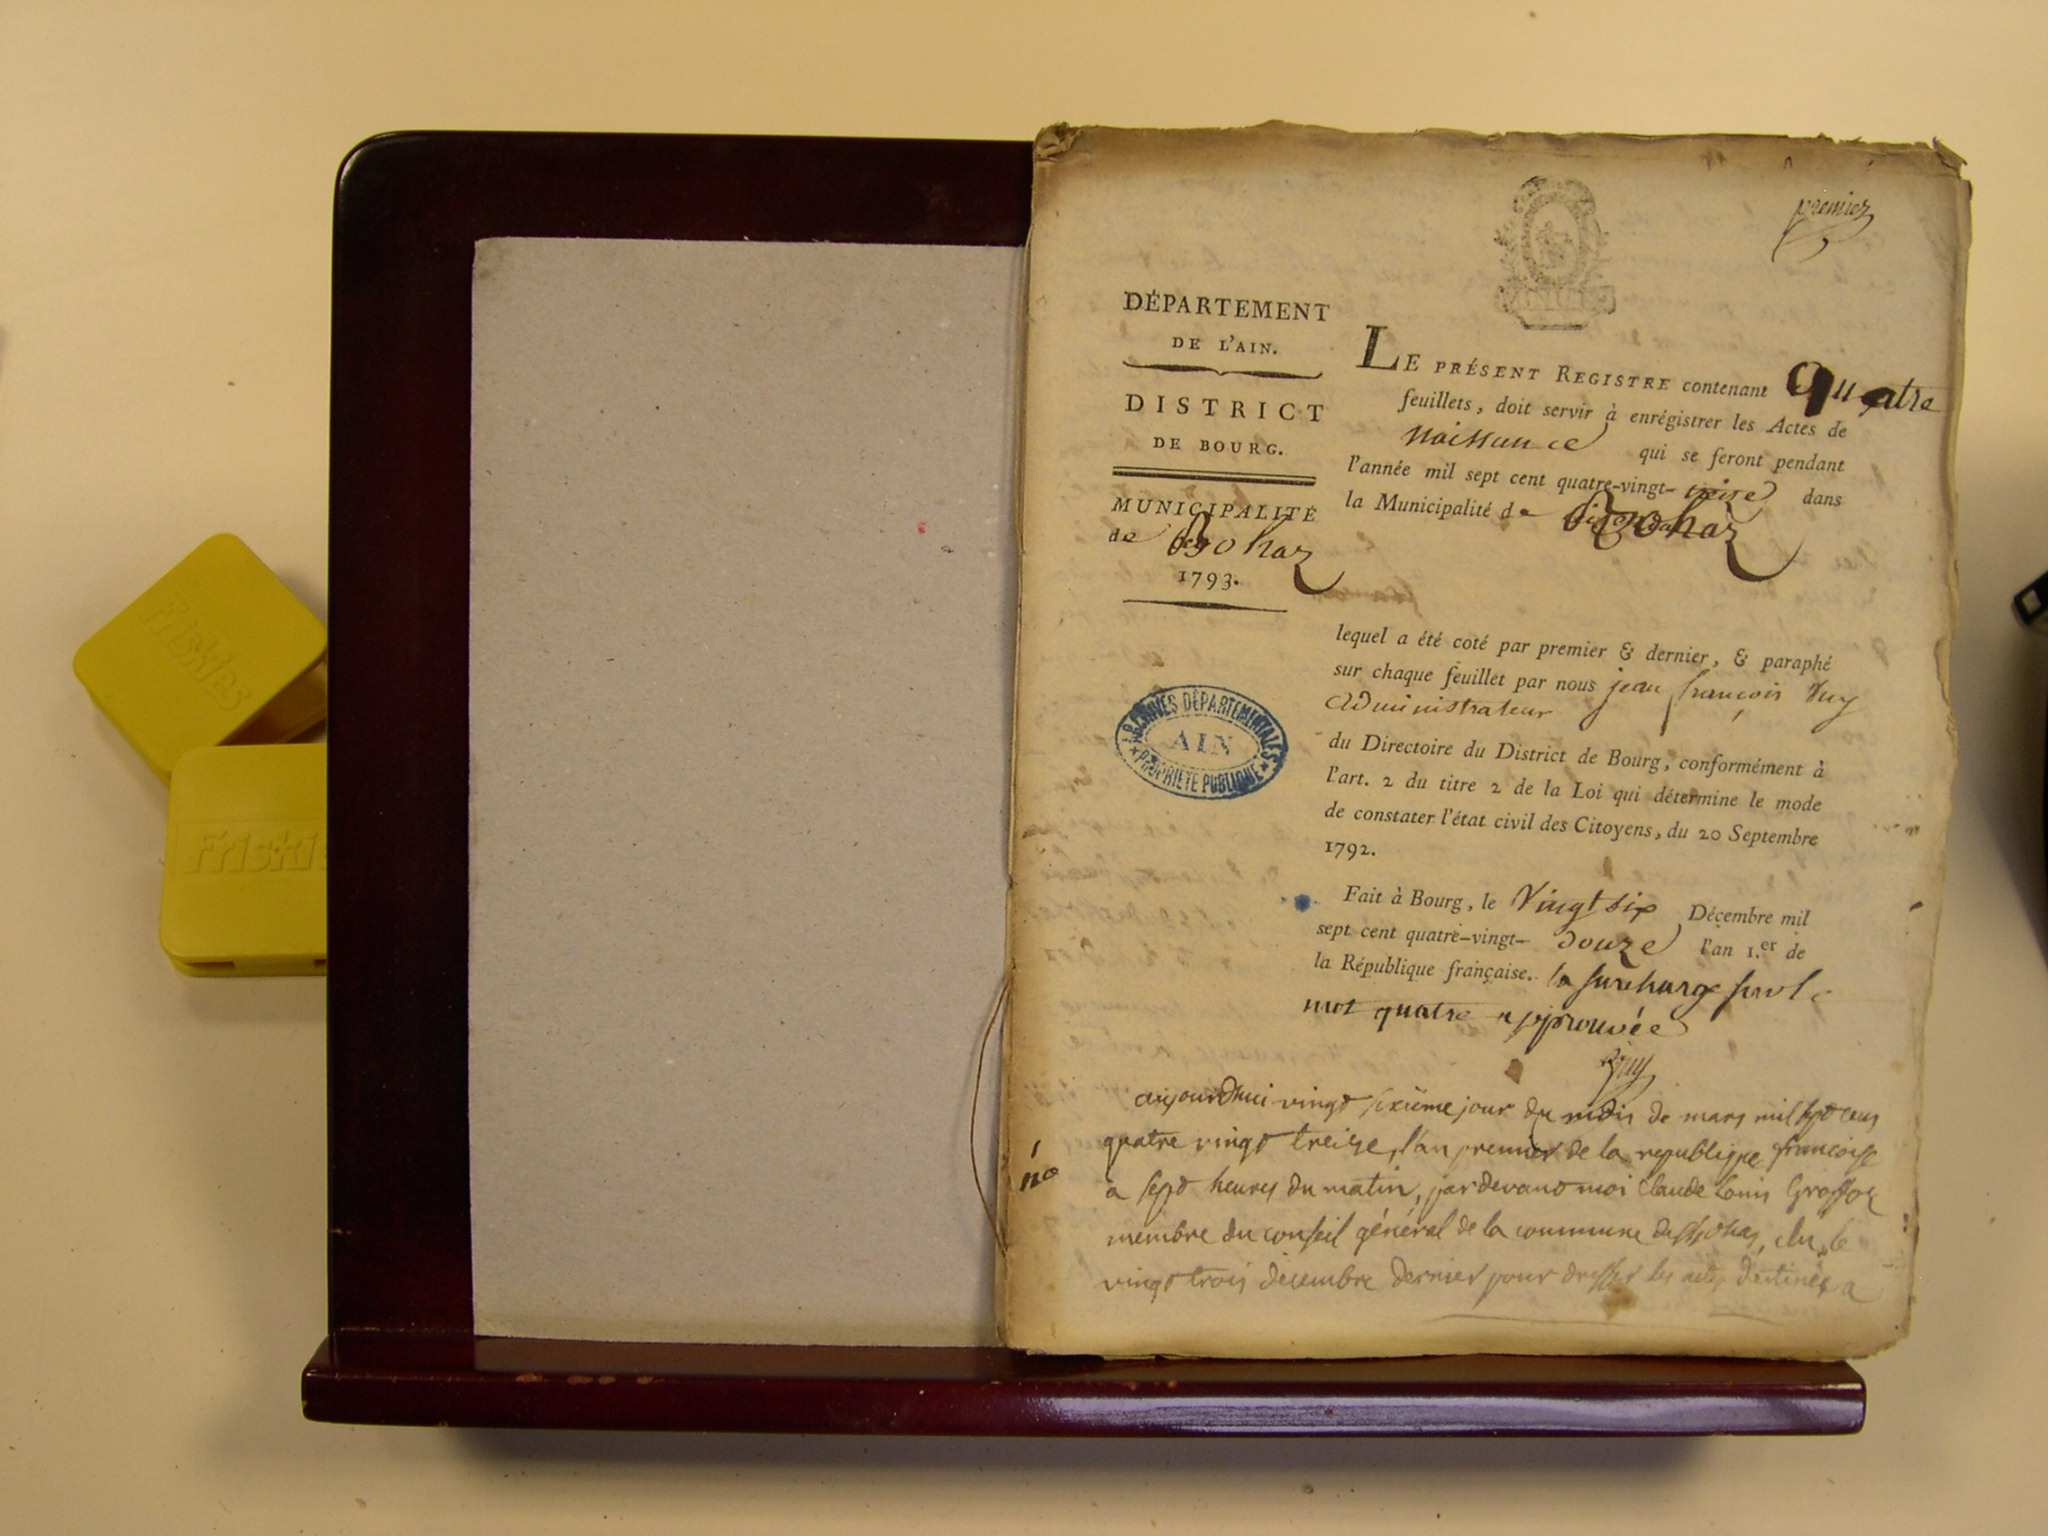 premier
DÉPARTEMENT
DE L'AIN.
DISTRICT
DE BOURG.
MUNICIPALITÉ
de Bohaz
1793.
LE PRÉSENT REGISTRE contenant Quatre
feuillets, doit servir à enrégistrer les Actes de
naissance qui se feront pendant
l'année mil sept cent quatre-vingt-treize dans
la Municipalité de Bohaz
lequel a été coté par premier & dernier, & paraphé
sur chaque feuillet par nous jean françois
administrateur
du Directoire du District de Bourg, conformément à
l'art. 2 du titre 2 de la Loi qui détermine le mode
de constater l'état civil des Citoyens, du 20 Septembre
1792.
Fait à Bourg, le Vingt six Décembre mil
sept cent quatre-vingt-douze l'an 1.er de
la République française. la surcharge sur le
mot quatre approuvée
ARCHIVES DÉPARTEMENTALES
AIN
PROPRIÉTÉ PUBLIQUE
aujourdhui vingt sixieme jour du mois de mars mil sept cens
quatre vingt treize, l'an premier de la republique françoise
a sept heures du matin, pardevant moi Claude Louis
membre du conseil général de la commune de Bohas, élu le
vingt trois decembre dernier pour dresser les actes destinés a
no
Friskies
Friski